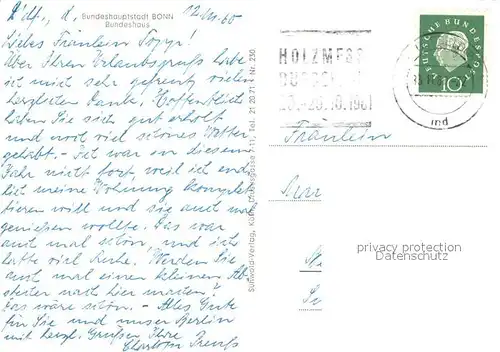 Bundeshauptstadt BONN
Bundeshaus
Ddf., d. 12.
Liebes Fräulein Topp!
Über Ihren Urlaubsgruß habe
ich mich sehr gefreut, vielen
herzlichen Dank. Hoffentlich
haben Sie sich gut erholt
und noch viel schönes Wetter
gehabt. - Ich war in diesem
Jahr nicht fort, weil ich end-
lich meine Wohnung komplet-
tieren will und sie auch mal
genießen wollte. Das war
auch mal schön, und ich
hatte viel Ruhe. Werden Sie
auch mal einen kleinen Ab-
stecher nach hier machen?
Das wäre schön. - Alles Gute
für Sie und unser Berlin
mit herzl. Grüßen Ihre
Charlotte
Nr. 230
HOLZMESS
28.10.1961
DEUTSCHE BUNDESPOST
10
md
Fräulein
privacy protection
akpool.de